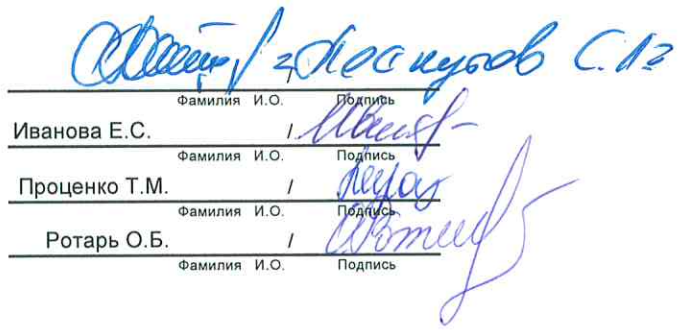 Лоскутов С.
Фамилия И.О. Подпись
Иванова Е.С. /
Фамилия И.О. Подпись
Проценко Т.М. /
Фамилия И.О. Подпись
Ротарь О.Б. /
Фамилия И.О. Подпись